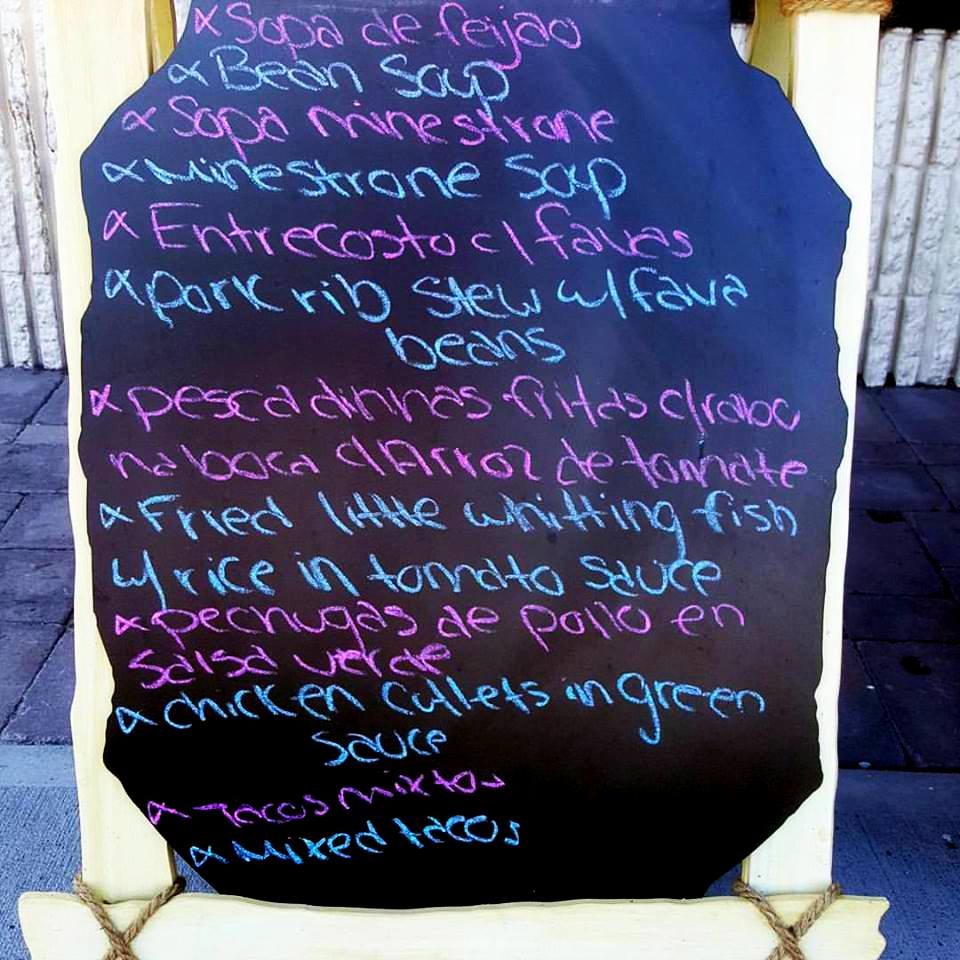 Sopa de feijao
Bean Soup
Sopa minestrone
Minestrone Soup
Entrecosto c/ favas
pork rib stew w/ fava
beans
pescadinhas fritas c/rabo
na boca c/Arroz de tomate
Fried little whitting fish
w/ rice in tomato sauce
pechugas de pollo en
salsa verde
chicken cutlets in green
sauce
Tacos mixtos
Mixed tacos